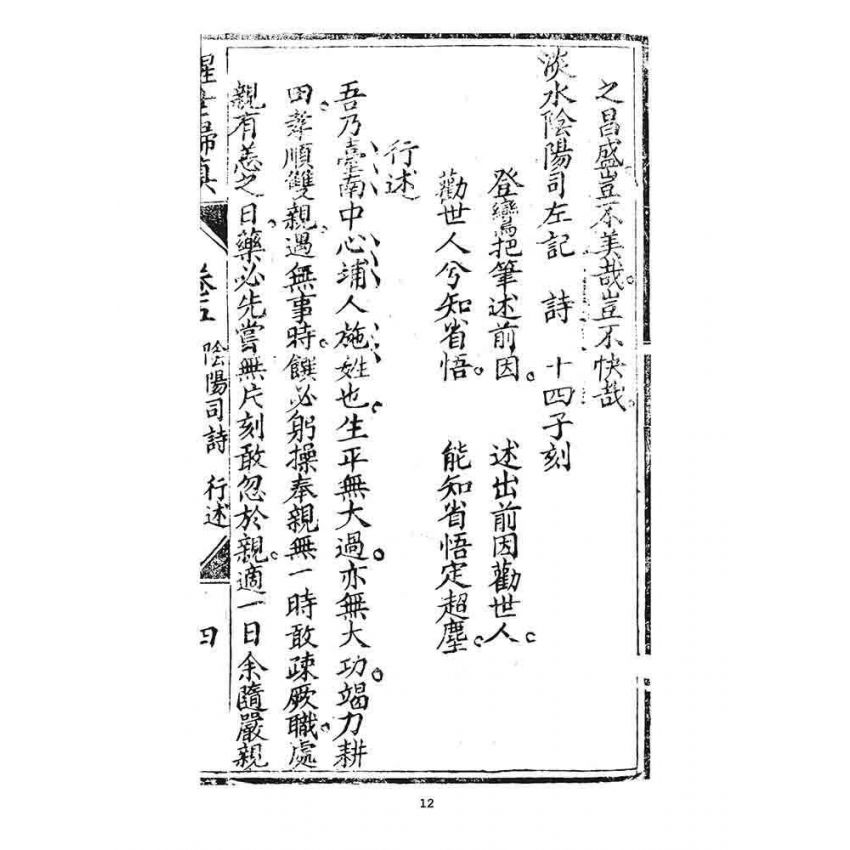 之昌盛。豈不美哉。豈不快哉。
淡水陰陽司左記　詩　十四子刻
登鸞把筆述前因。　述出前因勸世人。
勸世人兮知省悟。　能知省悟定超塵。
行述
吾乃臺南中心埔人施姓也。生平無大過。亦無大功。竭力耕
田。孝順雙親。遇無事時。饌必躬操奉親無一時敢疎厥職。處
親有恙之日。藥必先嘗無片刻敢忽於親。適一日余隨嚴親
醒世歸真　卷五　陰陽司詩　行述　四
12